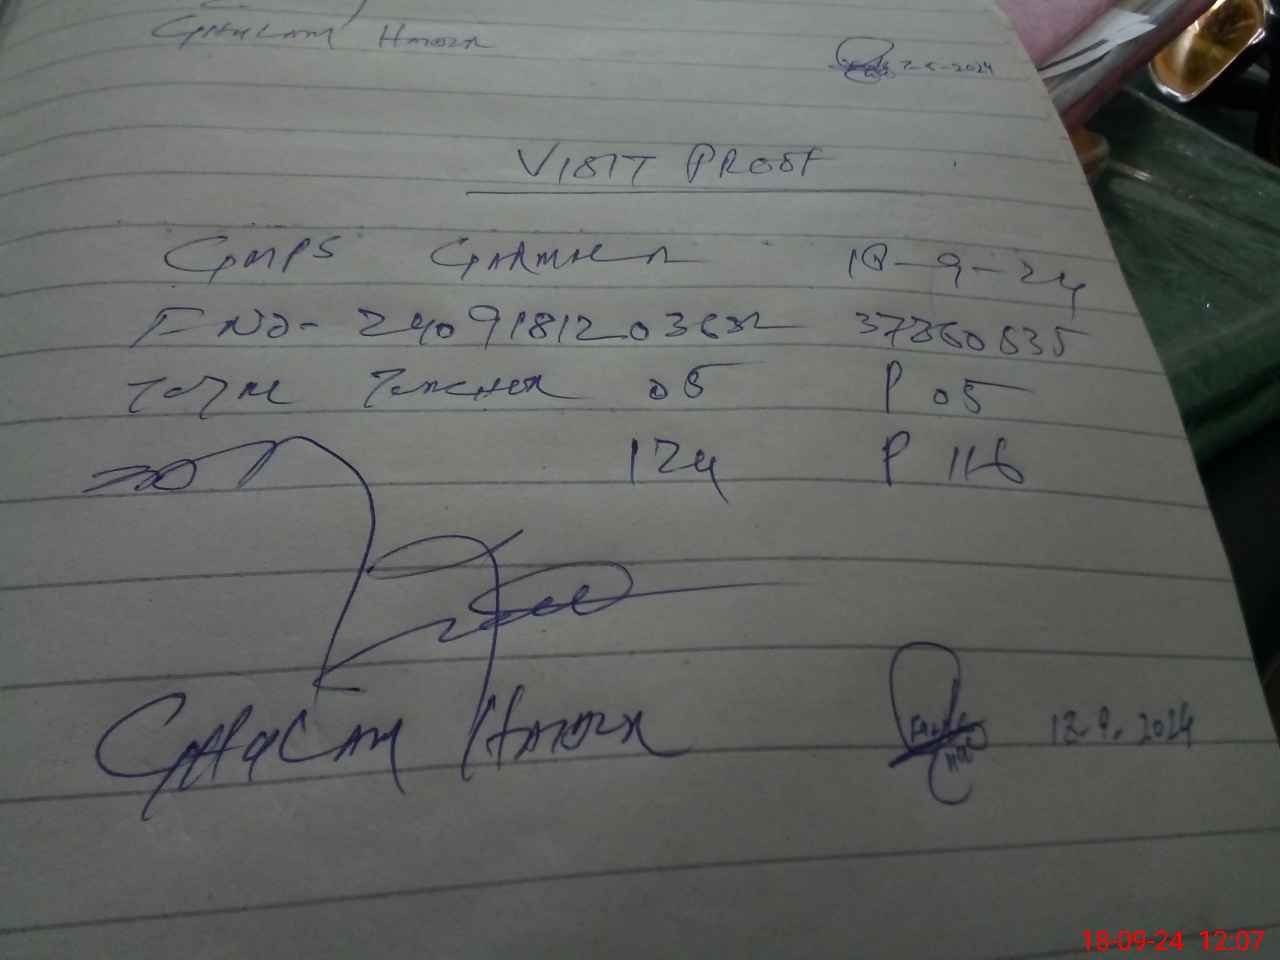 GHULAM HAIDER
2024
VISIT PROOF
GMPS GARMALA 18-9-24
F NO- 2409181203632 37260635
TOTAL TEACHER 05 P 05
124 P 116
GHULAM HAIDER
2024
18-09-24 12:07